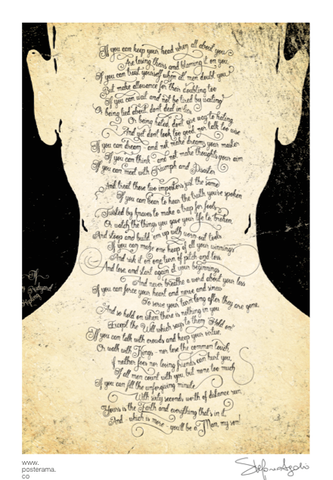 If you can keep your head when all about you
Are losing theirs and blaming it on you,
If you can trust yourself when all men doubt you,
But make allowance for their doubting too
If you can wait and not be tired by waiting
Or being lied about, don't deal in lies,
Or being hated, don't give way to hating
And yet don't look too good, nor talk too wise
If you can dream - and not make dreams your master
If you can think - and not make thoughts your aim
If you can meet with Triumph and Disaster
And treat those two impostors just the same
If you can bear to hear the truth you've spoken
Twisted by knaves to make a trap for fools,
Or watch the things you gave your life to, broken
And stoop and build 'em up with worn out tools
If you can make one heap of all your winnings
And risk it on one turn of pitch and toss
And lose and start again at your beginnings
And never breathe a word about your loss
If you can force your heart and nerve and sinew
To serve your turn long after they are gone,
And so hold on when there is nothing in you
Except the Will which says to them "Hold on"
If you can talk with crowds and keep your virtue,
Or walk with Kings - nor lose the common touch
If neither foes nor loving friends can hurt you,
If all men count with you, but none too much
If you can fill the unforgiving minute,
With sixty seconds worth of distance run,
Yours is the Earth and everything that's in it,
And - which is more - you'll be a Man, my son!
If
by Rudyard
Kipling
www.
posterama.
co